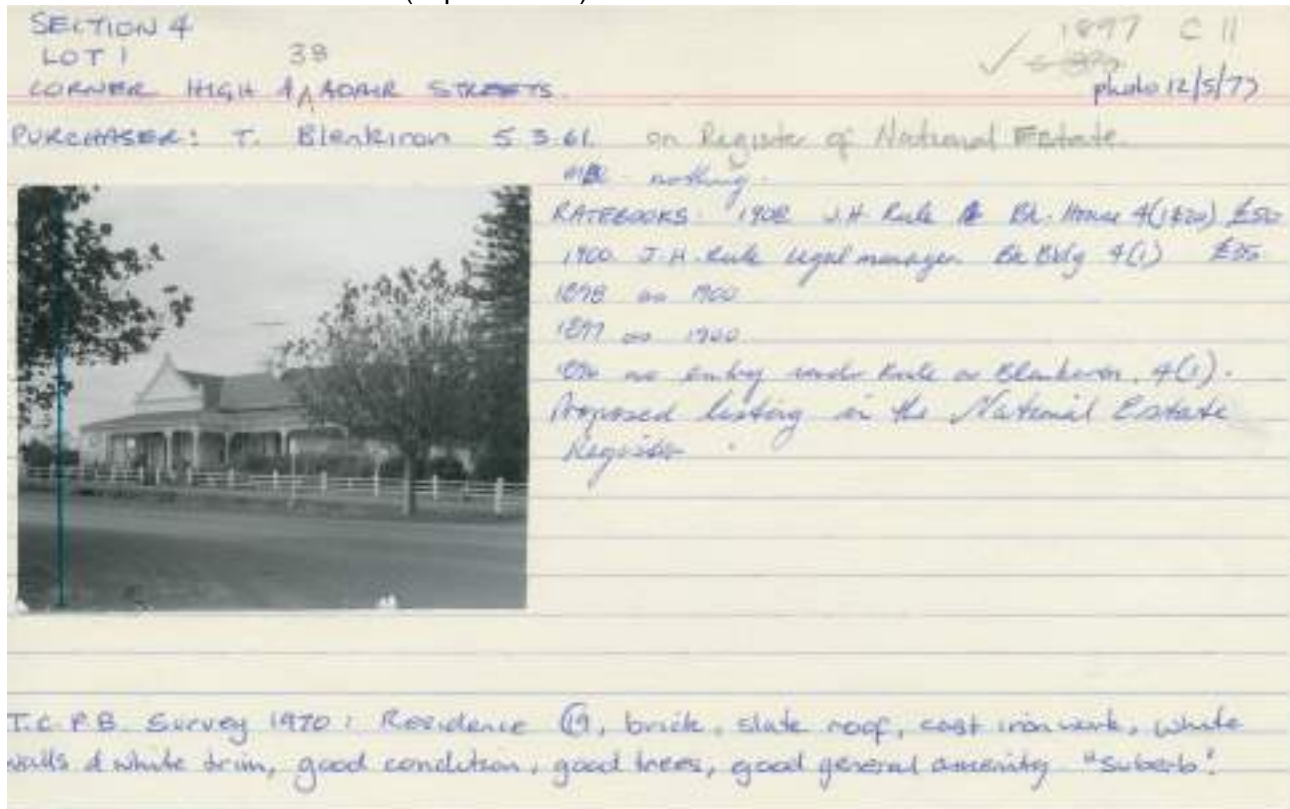 SECTION 4
LOT 1 38
CORNER HIGH & ADAIR STREETS.
1897 C 11
photo 12/5/77
PURCHASER: T. Blenkiron 5 3.61. on Register of National Estate.
nothing.
RATEBOOKS. 1902 J.H. Rule Bk. House 4(1&20) £50
1900 J.H. Rule legal manager Bk Bldg 4(1) £35
1898 as 1900
1897 as 1900
no entry under Rule or Blenkiron, 4(1).
Proposed listing in the National Estate
Register.
T.C.P.B. Survey 1970: Residence 19, brick, slate roof, cast iron work, white
walls & white trim, good condition, good trees, good general amenity "suberb".